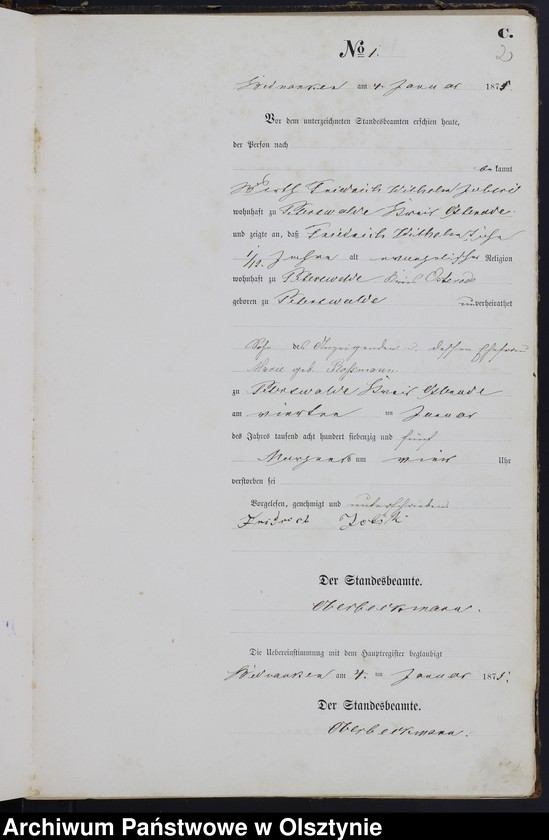 C.
2
No 1.
am 4. Januar 1875.
Vor dem unterzeichneten Standesbeamten erschien heute,
der Person nach
bekannt
Friedrich Wilhelm
wohnhaft zu Peterswalde Kreis Osterode
und zeigte an, daß Friedrich Wilhelm
1/12 Jahre alt evangelischer Religion
wohnhaft zu Peterswalde Kreis Osterode
geboren zu Peterswalde unverheirathet
Sohn des Anzeigenden u. dessen Ehefrau
Marie geb.
zu Peterswalde Kreis Osterode
am vierten im Januar
des Jahres tausend acht hundert siebenzig und fünf
Morgens um vier Uhr
verstorben sei
Vorgelesen, genehmigt und unterschrieben
Fridrich
Der Standesbeamte.
Oberbeckmann.
Die Uebereinstimmung mit dem Hauptregister beglaubigt
am 4. im Januar 1875.
Der Standesbeamte.
Oberbeckmann.
Archiwum Państwowe w Olsztynie